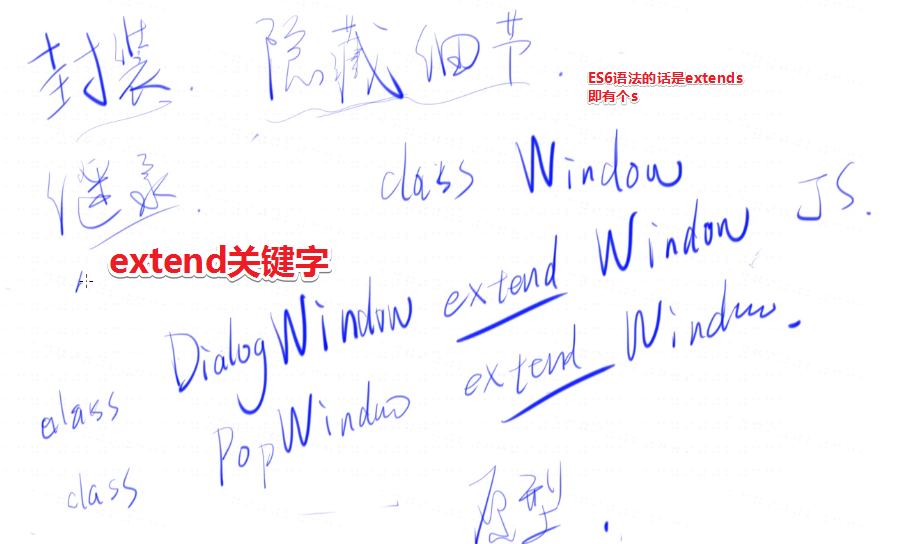 封装. 隐藏细节.
ES6语法的话是extends
即有个s
继承.
class Window
JS.
extend关键字
class DialogWindow extend Window
class PopWindow extend Window
原型.